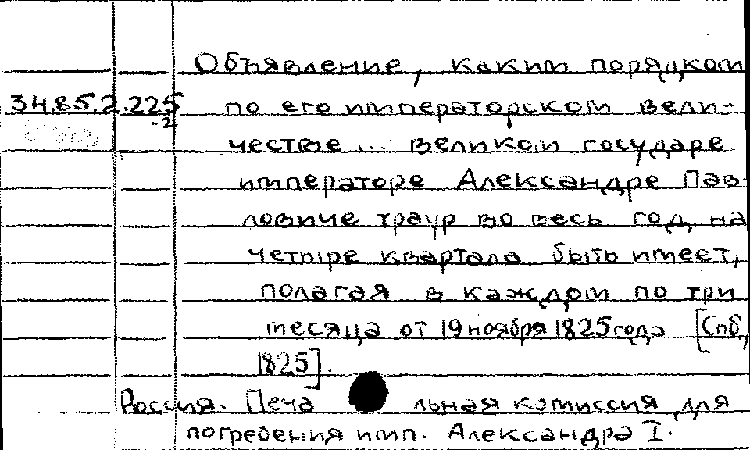 Объявление, каким порядком
34.85.2.225 по его императорском вели-
-2
честве ... великом государе
императоре Александре Пав-
ловиче траур во весь год, на
четыре квартала быть имеет,
полагая в каждом по три
месяца от 19 ноября 1825 года [Спб.,
1825].
Россия. Печа льная комиссия для
погребения имп. Александра I.